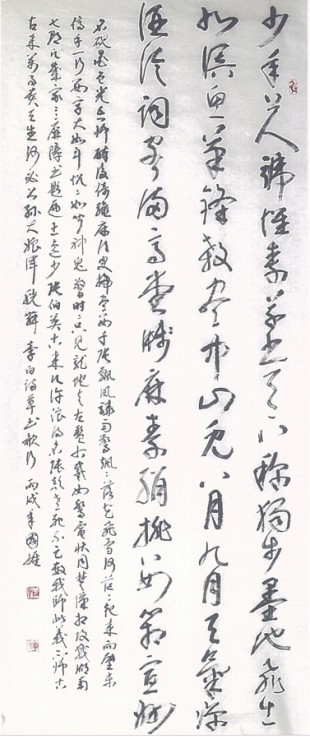 少年上人號懷素草書天下稱獨步墨池飛出
北溟魚筆鋒殺盡中山兔八月九月天氣涼
酒徒詞客滿高堂牋麻素絹排數箱宣州
石硯墨色光吾師醉後倚繩床須臾掃盡數千張飄風驟雨驚颯颯落花飛雪何茫茫起來向壁不
停手一行數字大如斗怳怳如聞神鬼驚時時只見龍蛇走左盤右蹙如驚電狀同楚漢相攻戰湖南
七郡凡幾家家家屏障書題遍王逸少張伯英古來幾許浪得名張顛老死不足數我師此義不師古
古來萬事貴天生何必要公孫大娘渾脫舞 李白詩草書歌行 丙戌年國